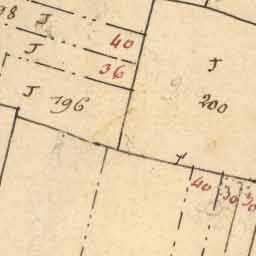 98 J
J 40
36
J 196
J
200
40 30 30